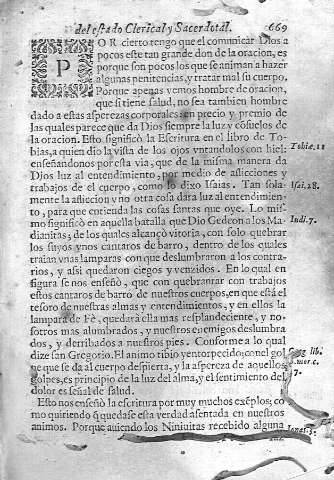 del estado Clerical y Sacerdotal. 669
POR cierto tengo que el comunicar Dios a
pocos este tan grande don de la oracion, es
porque son pocos los que se animan a hazer
algunas penitencias, y tratar mal su cuerpo.
Porque apenas vemos hombre de oracion,
que si tiene salud, no sea tambien hombre
dado a estas asperezas corporales: en precio y premio de
las quales parece que da Dios siempre la luz y cõsuelos de
la oracion. Esto significò la Escritura en el libro de To-
bias, a quien dio la vista de los ojos vntandolos con hiel;
enseñandonos por esta via, que de la misma manera da
Dios luz al entendimiento, por medio de aflicciones y
trabajos de el cuerpo, como lo dixo Isaias. Tan sola-
mente la afliccion y no otra cosa dara luz al entendimien-
to, para que entienda las cosas santas que oye. Lo mis-
mo significò en aquella batalla que Dio Gedeon a los Ma-
dianitas, de los quales alcançò vitoria, con solo quebrar
los suyos vnos cantaros de barro, dentro de los quales
traian vnas lamparas con que deslumbraron a los contra-
rios, y assi quedaron ciegos y venzidos. En lo qual en
figura se nos enseñò, que con quebrantar con trabajos
estos cantaros de barro de nuestros cuerpos, en que està el
tesoro de nuestras almas y entendimientos, y en ellos la
lampara de Fè, quedarà ella mas resplandeciente, y no-
sotros mas alumbrados, y nuestros enemigos deslumbra
dos, y derribados a nuestros pies. Conforme a lo qual
dize san Gregorio. El animo tibio y entorpecido; con el gol
pe que se da al cuerpo despierta, y la aspereza de aquellos
golpes, es principio de la luz del alma, y el sentimiento del
dolor es señal de salud.
Esto nos enseñò la escritura por muy muchos exẽplos; co
mo quiriendo q̃ quedase esta verdad asentada en nuestros
animos. Porque auiendo los Niniuitas recebido alguna
Tobiæ. 11
Isai. 28.
Iudi. 7.
lib.
mor. c.
7.
Ionas. 3.